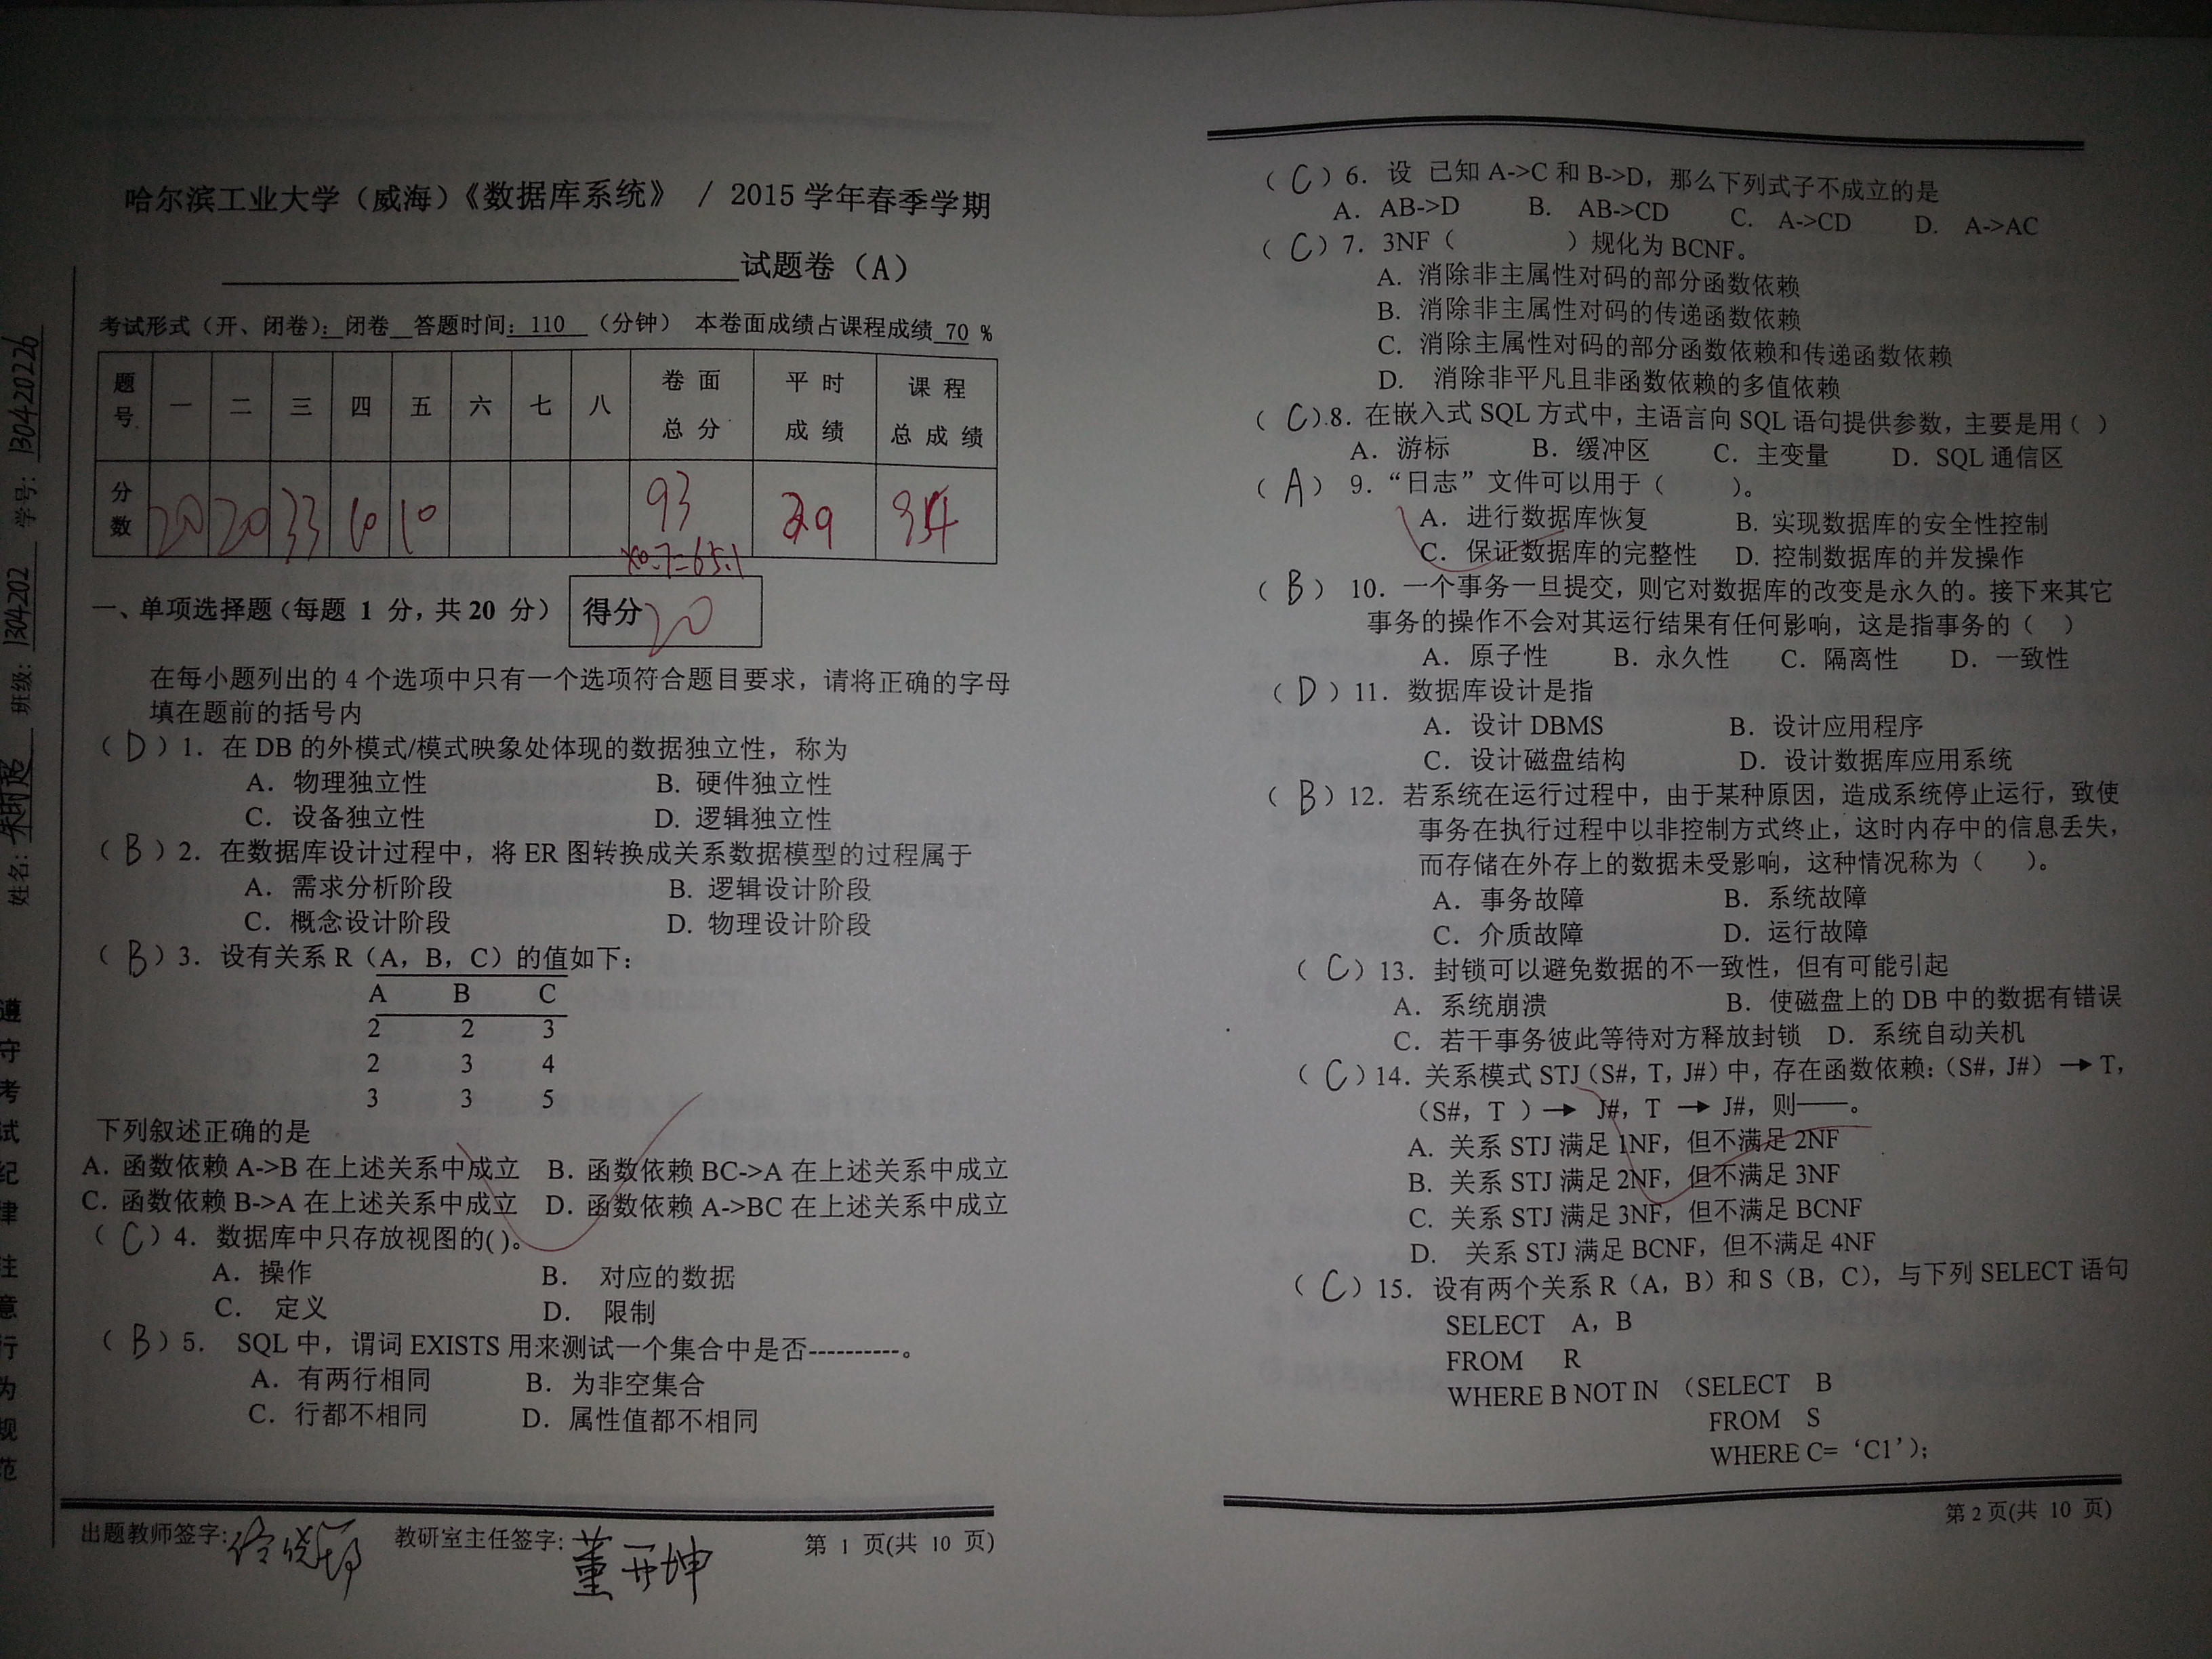 哈尔滨工业大学（威海）《数据库系统》 / 2015 学年春季学期
试题卷（A）
考试形式（开、闭卷）：闭卷 答题时间：110 （分钟） 本卷面成绩占课程成绩 70 %
题号 一 二 三 四 五 六 七 八 卷面总分 平时成绩 课程总成绩
分数 20 20 33 10 10 93 29 94
×0.7=65.1
一、单项选择题（每题 1 分，共 20 分） 得分 20
在每小题列出的 4 个选项中只有一个选项符合题目要求，请将正确的字母
填在题前的括号内
（ D ）1．在 DB 的外模式/模式映象处体现的数据独立性，称为
A．物理独立性 B. 硬件独立性
C．设备独立性 D. 逻辑独立性
（ B ）2．在数据库设计过程中，将 ER 图转换成关系数据模型的过程属于
A．需求分析阶段 B. 逻辑设计阶段
C．概念设计阶段 D. 物理设计阶段
（ B ）3．设有关系 R（A，B，C）的值如下：
A B C
2 2 3
2 3 4
3 3 5
下列叙述正确的是
A. 函数依赖 A->B 在上述关系中成立 B. 函数依赖 BC->A 在上述关系中成立
C. 函数依赖 B->A 在上述关系中成立 D. 函数依赖 A->BC 在上述关系中成立
（ C ）4．数据库中只存放视图的( )。
A．操作 B． 对应的数据
C． 定义 D． 限制
（ B ）5． SQL 中，谓词 EXISTS 用来测试一个集合中是否----------。
A．有两行相同 B．为非空集合
C．行都不相同 D．属性值都不相同
出题教师签字: 教研室主任签字: 董开坤 第 1 页(共 10 页)
姓名: 班级: 1304202 学号: 130420226
遵守考试纪律注意行为规范
（ C ）6．设 已知 A->C 和 B->D，那么下列式子不成立的是
A．AB->D B． AB->CD C． A->CD D． A->AC
（ C ）7．3NF（ ）规化为 BCNF。
A. 消除非主属性对码的部分函数依赖
B. 消除非主属性对码的传递函数依赖
C. 消除主属性对码的部分函数依赖和传递函数依赖
D. 消除非平凡且非函数依赖的多值依赖
（ C ）8．在嵌入式 SQL 方式中，主语言向 SQL 语句提供参数，主要是用（ ）
A．游标 B．缓冲区 C．主变量 D．SQL 通信区
（ A ） 9．“日志”文件可以用于（ ）。
A．进行数据库恢复 B. 实现数据库的安全性控制
C．保证数据库的完整性 D. 控制数据库的并发操作
（ B ） 10．一个事务一旦提交，则它对数据库的改变是永久的。接下来其它
事务的操作不会对其运行结果有任何影响，这是指事务的（ ）
A．原子性 B．永久性 C．隔离性 D．一致性
（ D ）11．数据库设计是指
A．设计 DBMS B．设计应用程序
C．设计磁盘结构 D．设计数据库应用系统
（ B ）12．若系统在运行过程中，由于某种原因，造成系统停止运行，致使
事务在执行过程中以非控制方式终止，这时内存中的信息丢失，
而存储在外存上的数据未受影响，这种情况称为（ ）。
A．事务故障 B．系统故障
C．介质故障 D．运行故障
（ C ）13．封锁可以避免数据的不一致性，但有可能引起
A．系统崩溃 B．使磁盘上的 DB 中的数据有错误
C．若干事务彼此等待对方释放封锁 D．系统自动关机
（ C ）14．关系模式 STJ（S#，T，J#）中，存在函数依赖：（S#，J#）→ T，
（S#，T ）→ J#，T → J#，则——。
A. 关系 STJ 满足 1NF，但不满足 2NF
B. 关系 STJ 满足 2NF，但不满足 3NF
C. 关系 STJ 满足 3NF，但不满足 BCNF
D. 关系 STJ 满足 BCNF，但不满足 4NF
（ C ）15．设有两个关系 R（A，B）和 S（B，C），与下列 SELECT 语句
SELECT A，B
FROM R
WHERE B NOT IN （SELECT B
FROM S
WHERE C= ‘C1’）；
第 2 页(共 10 页)